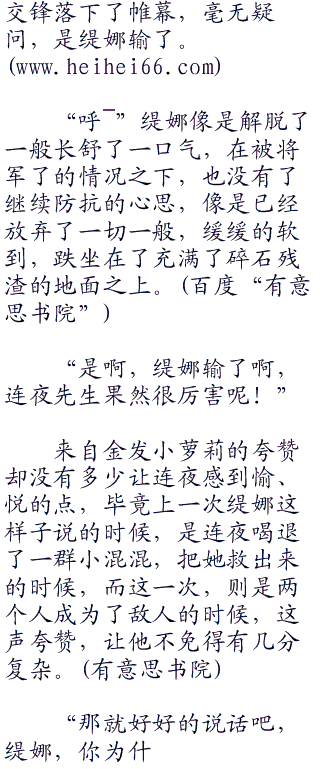 交锋落下了帷幕，毫无疑
问，是缇娜输了。
(www.heihei66.com)
“呼ˉ”缇娜像是解脱了
一般长舒了一口气，在被将
军了的情况之下，也没有了
继续防抗的心思，像是已经
放弃了一切一般，缓缓的软
到，跌坐在了充满了碎石残
渣的地面之上。(百度“有意
思书院”)
“是啊，缇娜输了啊，
连夜先生果然很厉害呢！”
来自金发小萝莉的夸赞
却没有多少让连夜感到愉、
悦的点，毕竟上一次缇娜这
样子说的时候，是连夜喝退
了一群小混混，把她救出来
的时候，而这一次，则是两
个人成为了敌人的时候，这
声夸赞，让他不免得有几分
复杂。(有意思书院)
“那就好好的说话吧，
缇娜，你为什